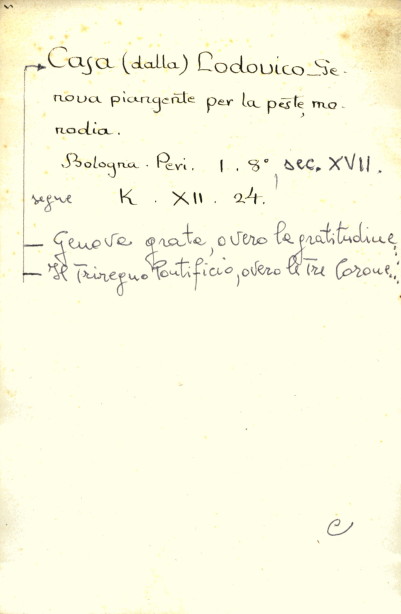 Casa (dalla) Lodovico_Ge-
nova piangente per la peste, mo-
nodia.
Bologna. Peri. 1. 8°, sec. XVII.
segue K. XII. 24.
— Genova grata, overo la gratitudine...
— Il Triregno Pontificio, overo le Tre Corone...
C